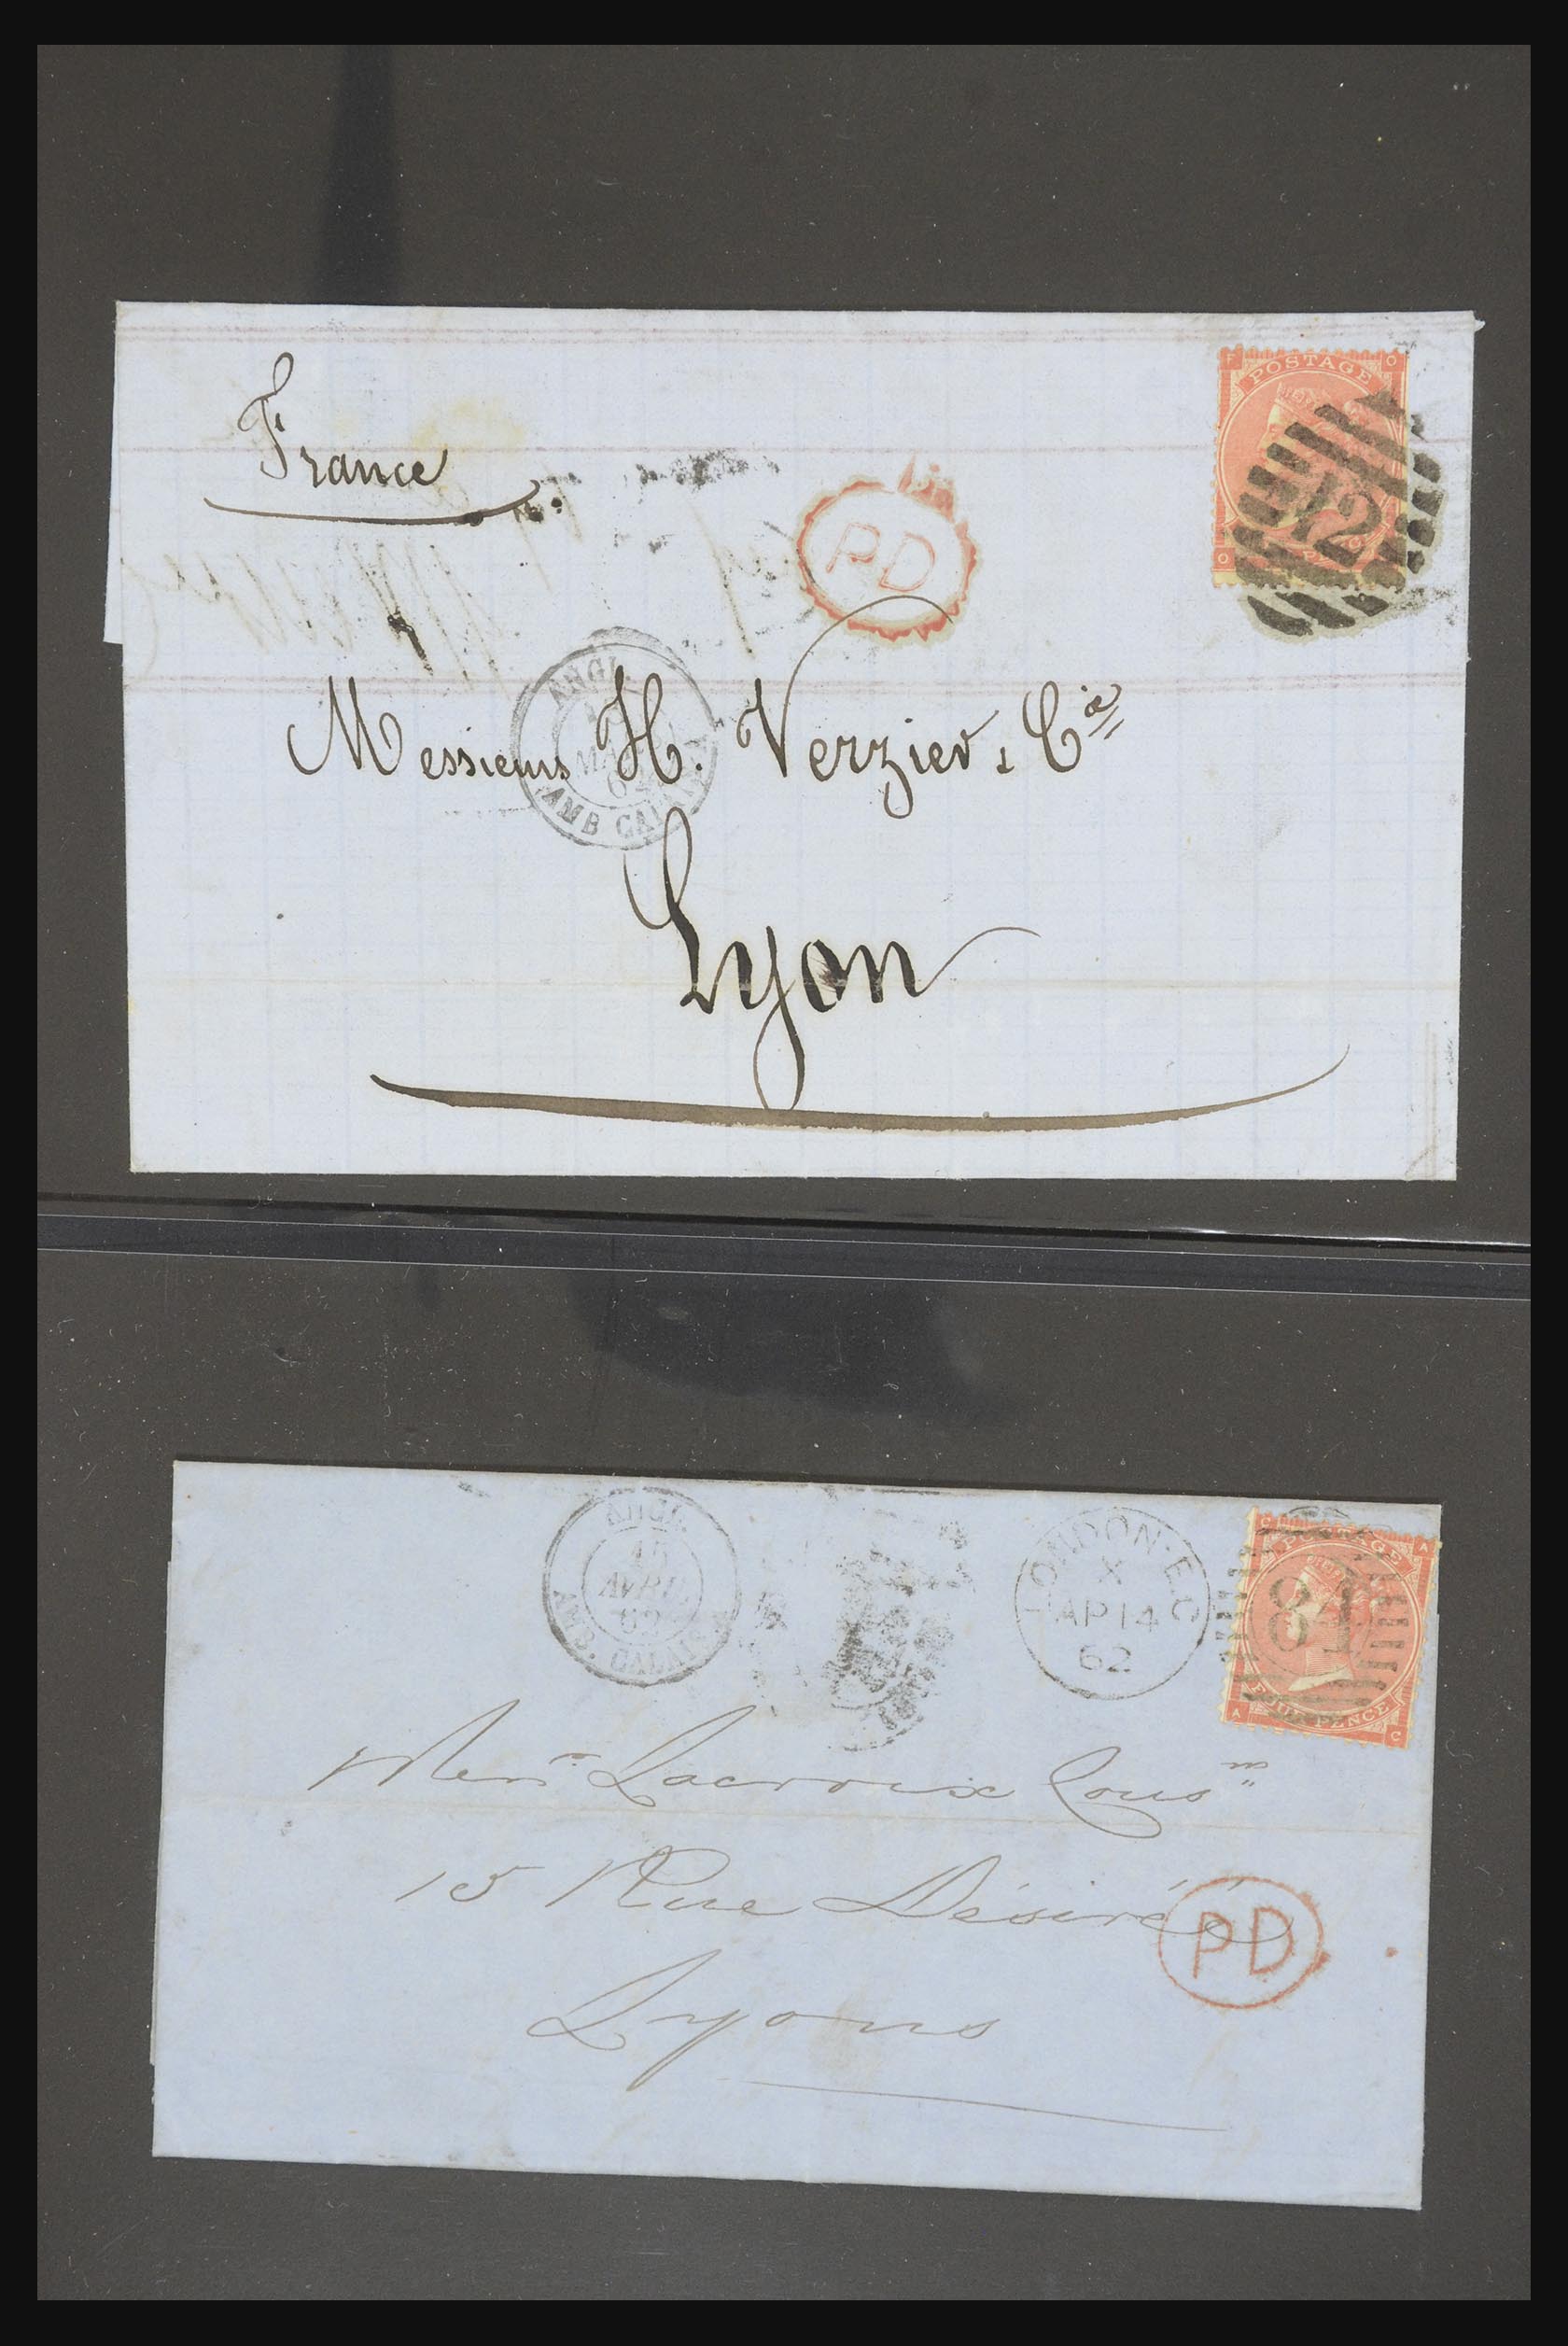 France
F O
POSTAGE
72
O
PD
ANGL.
AMB. CALAIS
Messieurs H. Verzier & Cie
Lyon
ANGL.
15
AVRIL
62
AMB. CALAIS
LONDON·E.C
X
AP 14
62
C A
POSTAGE
81
FOUR PENCE
A C
Lacroix Cousn
15 Rue Désirée
PD
Lyons